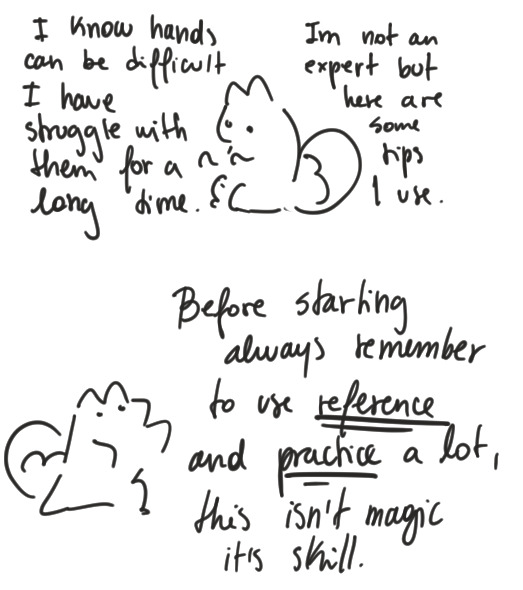 I know hands
can be difficult
I have
struggle with
them for a
long time.
Im not an
expert but
here are
some
tips
I use.
Before starting
always remember
to use reference
and practice a lot,
this isn't magic
it's skill.